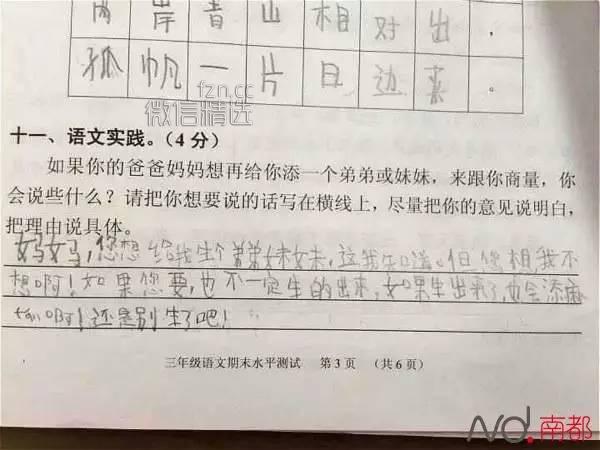 两岸青山相对出，
孤帆一片日边来。
fzn.cc
微信精选
十一、语文实践。（4分）
如果你的爸爸妈妈想再给你添一个弟弟或妹妹，来跟你商量，你
会说些什么？请把你想要说的话写在横线上，尽量把你的意见说明白，
把理由说具体。
妈妈，您想给我生个弟弟妹妹，这我知道。但您想，我不
想啊！如果您要，也不一定生的出来，如果生出来了，也会添麻
烦啊！还是别生了吧！
三年级语文期末水平测试 第3页 （共6页）
Nd.南都